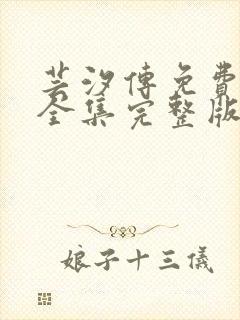 芸汐傳免費
全集完整版
娘子十三儀